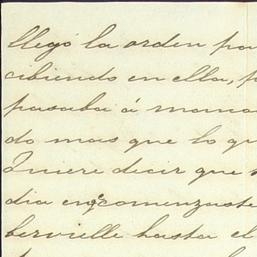 llegó la orden pa
cibiendo en ella, p
pasaba á mano
do mas que lo qu
Quiere decir que
dia en q. comenzaste
bervielle hasta el